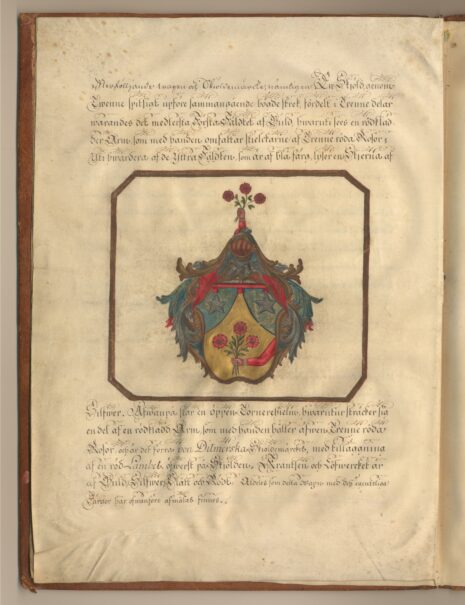 Efterföljande wapen och Sköldemärcke, nämligen En Skiöld, genom
Twenne spitsigt upföre sammangående bogde streck, fördelt i Trenne delar
warandes det medlersta Första Fäldtet af Guld, hwaruti sees en rödklad
der Arm, som med handen omfattar stielckarne af Trenne röda Rosor,
Uti hwardera af de Yttra Fäldten, som är af blå färg, lyser en Stierna af
Silfwer. Ofwanpå står en öppen Tornerhielm, hwarutur sträcker sig
en del af en rödkladd Arm, som med handen håller äfwen Trenne röda
Rosor, och är det förra von Sköldemärcket, med tilläggning
af en röd Lambel, öfwerst på Skiölden, Krantsen och Löfwercket är
af Guld, Silfwer, Blått och Rödt. Aldeles som detta wapn med des egenteliga
Färgor här ofwanföre afmålat finnes.